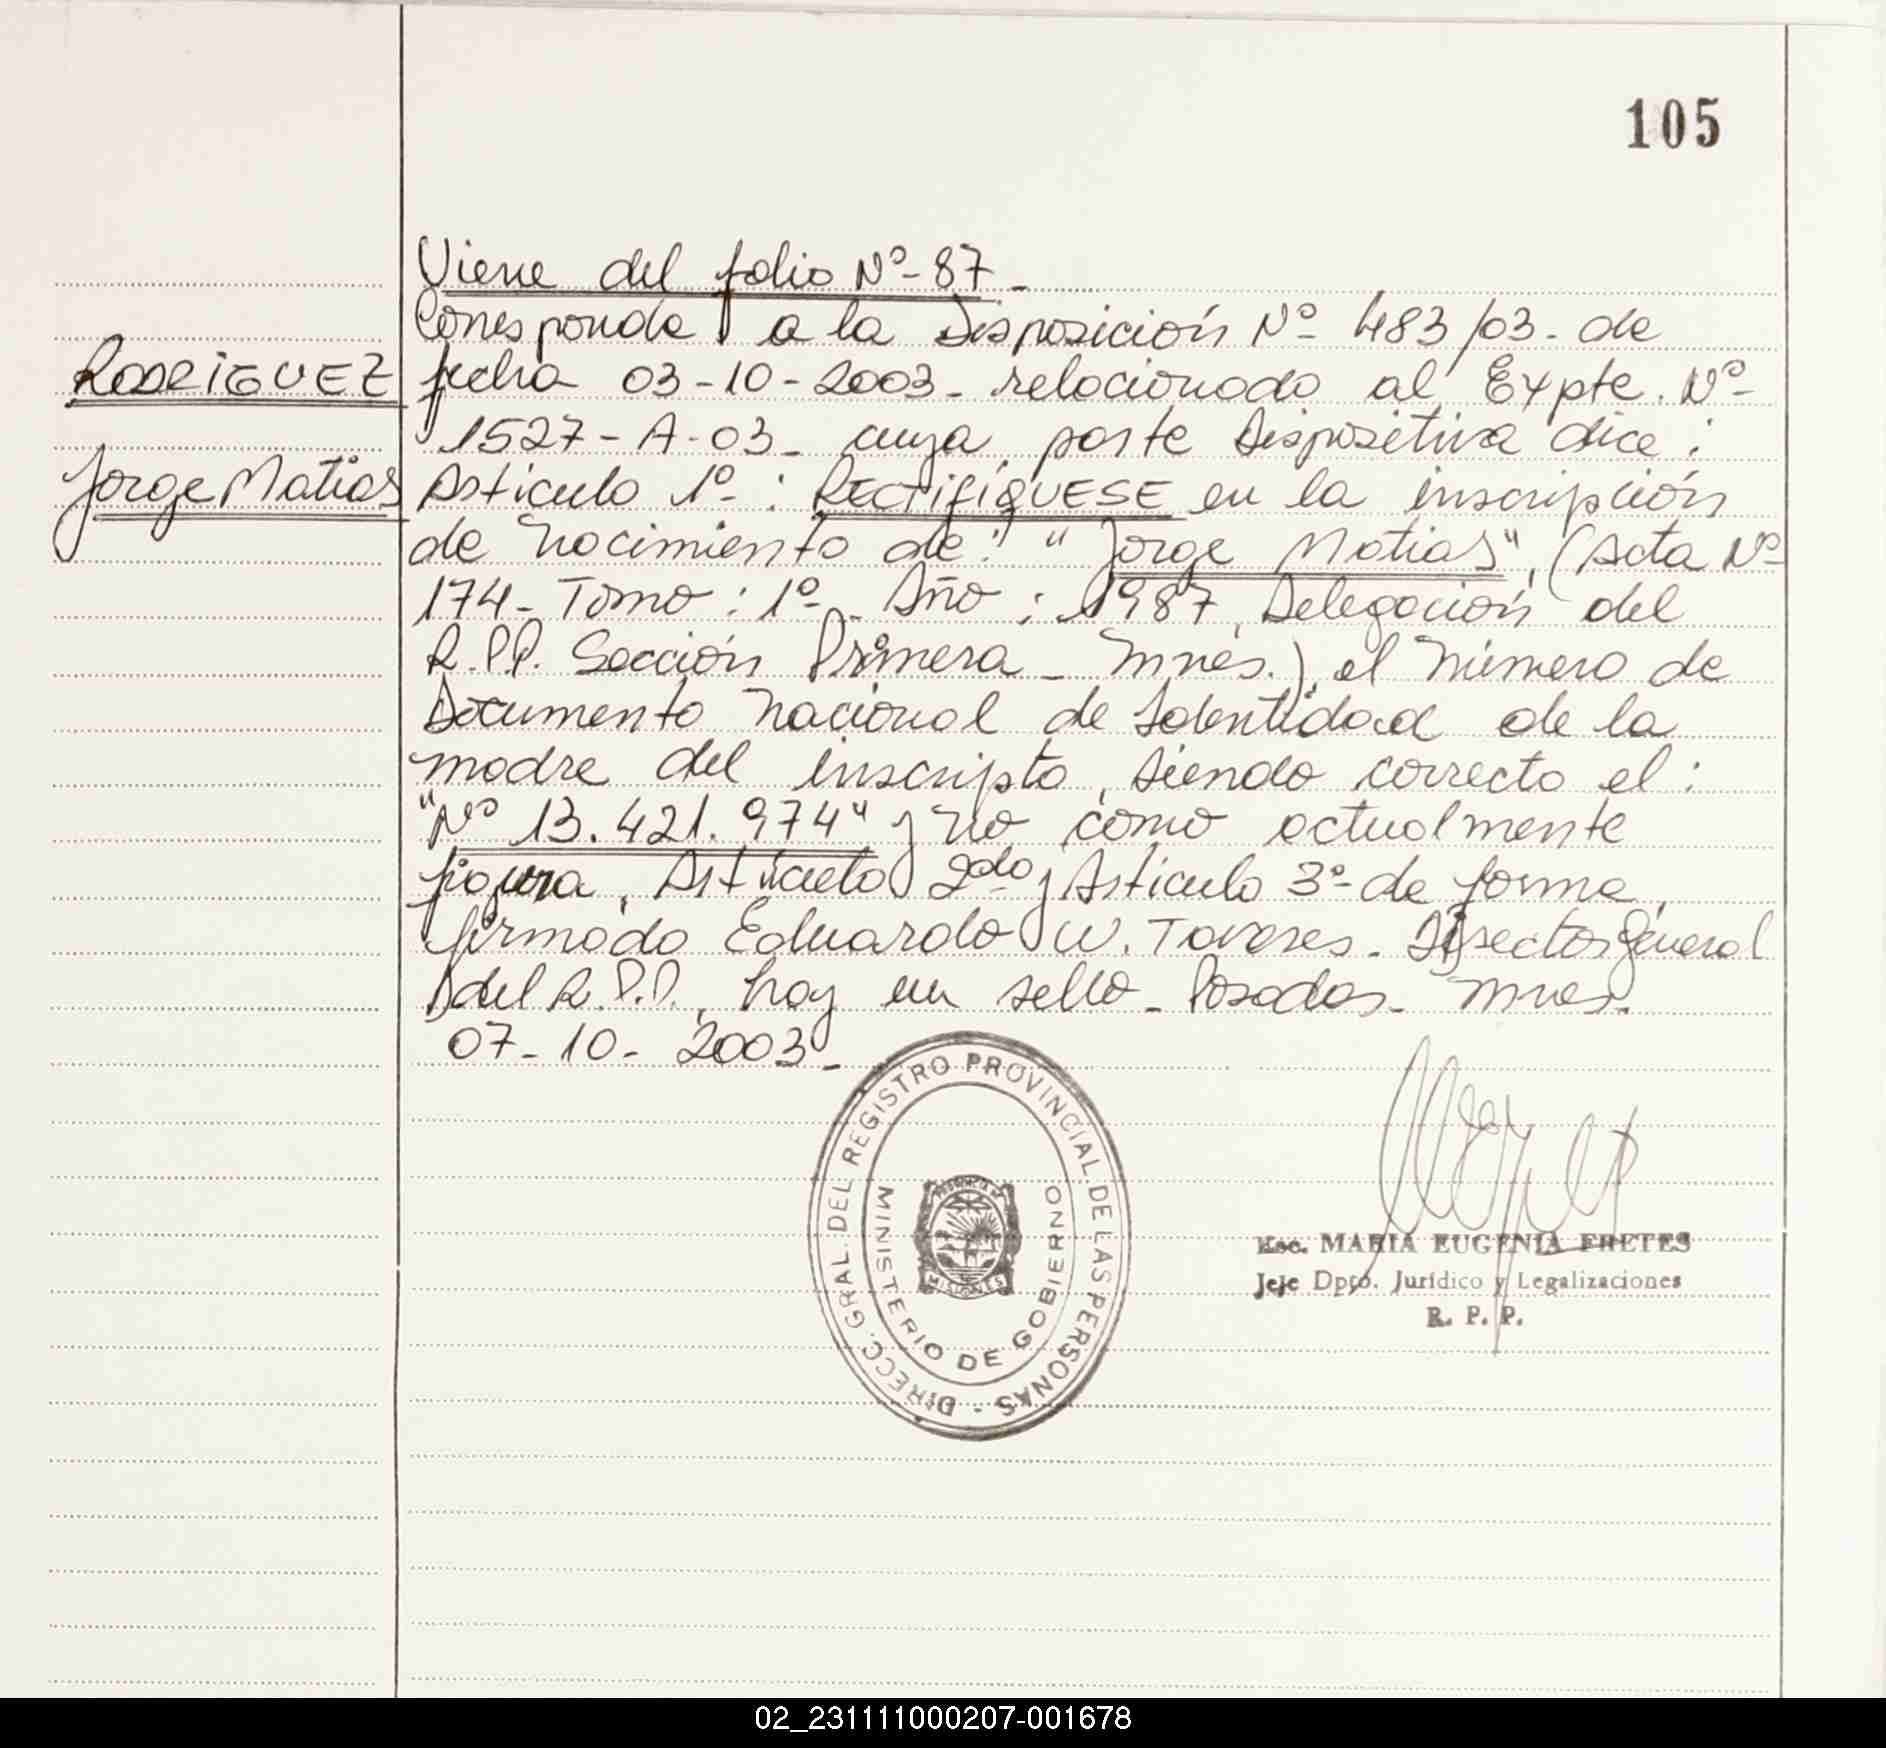 105
Viene del folio Nº-87-
Corresponde a la Disposición Nº 483/03- de
RODRIGUEZ
fecha 03-10-2003- relacionado al Expte. Nº-
1527-A-03- cuya parte Dispositiva dice:
Jorge Matias
Artículo 1º-: RECTIFÍQUESE en la inscripción
de nacimiento de: "Jorge Matias", (Acta Nº
174- Tomo: 1º- Año: 1987, Delegación del
R.P.P. Sección Primera - Mnes.), el número de
Documento Nacional de Identidad de la
madre del inscripto, siendo correcto el:
"Nº 13.421.974" y no como actualmente
figura, Artículo 2do y Artículo 3º- de forma,
firmado Eduardo W. Tavares- Director General
del R.P.P., hay un sello- Posadas- Mnes.
07-10-2003-
DIRECC. GRAL. DEL REGISTRO PROVINCIAL DE LAS PERSONAS -
MINISTERIO DE GOBIERNO
PROVINCIA DE
MISIONES
Esc. MARIA EUGENIA FRETES
Jefe Dpto. Jurídico y Legalizaciones
R. P. P.
02_231111000207-001678